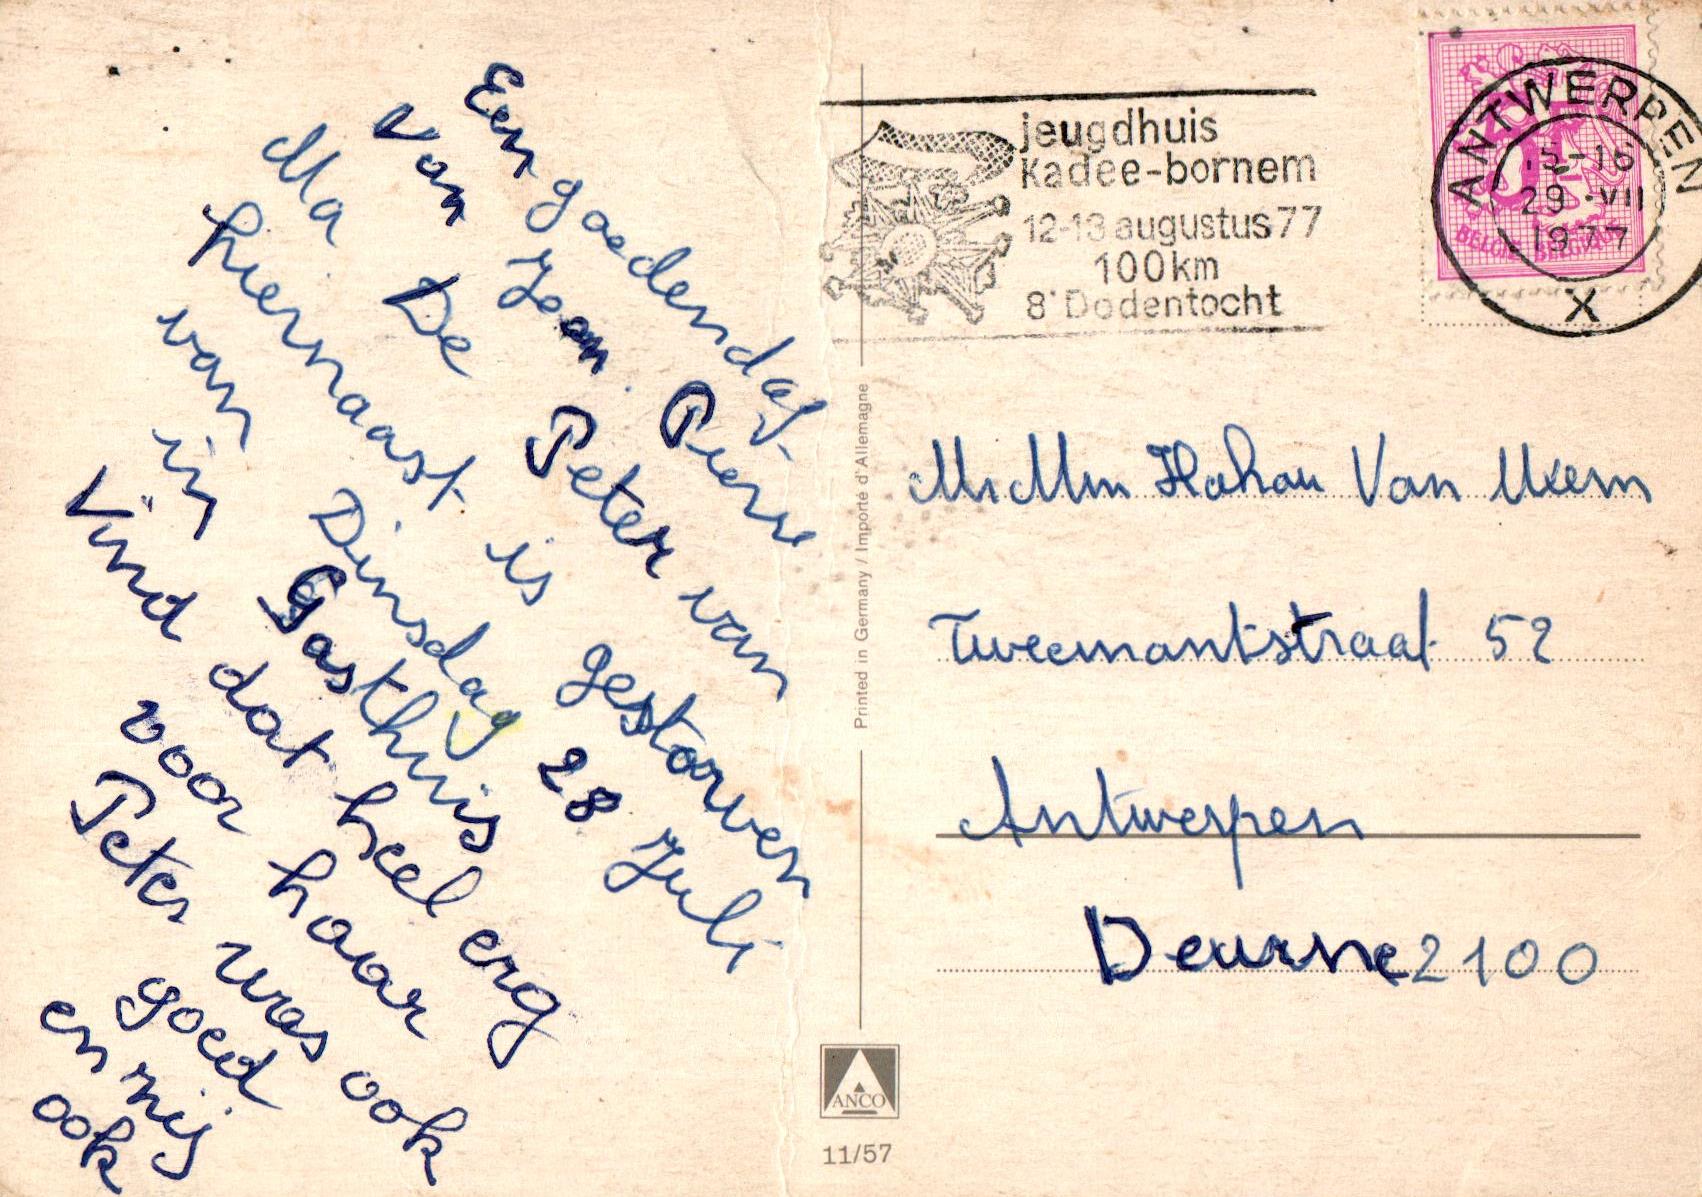 Een goedendag
van Jean. Pierre
Ma De Peter van
hiernaast is gestorven
van Dinsdag 28 Juli
in Gasthuis
Vind dat heel erg
voor haar
Peter was ook
goed
en zij
ook
jeugdhuis
Kadee-bornem
12-13 augustus 77
100km
8° Dodentocht
ANTWERPEN
15-16
29 · VII
1977
X
BELGIE BELGIQUE
Printed in Germany / Importé d'Allemagne
Mr Mm Van
Tweemontstraat 52
Antwerpen
Deurne 2100
ANCO
11/57